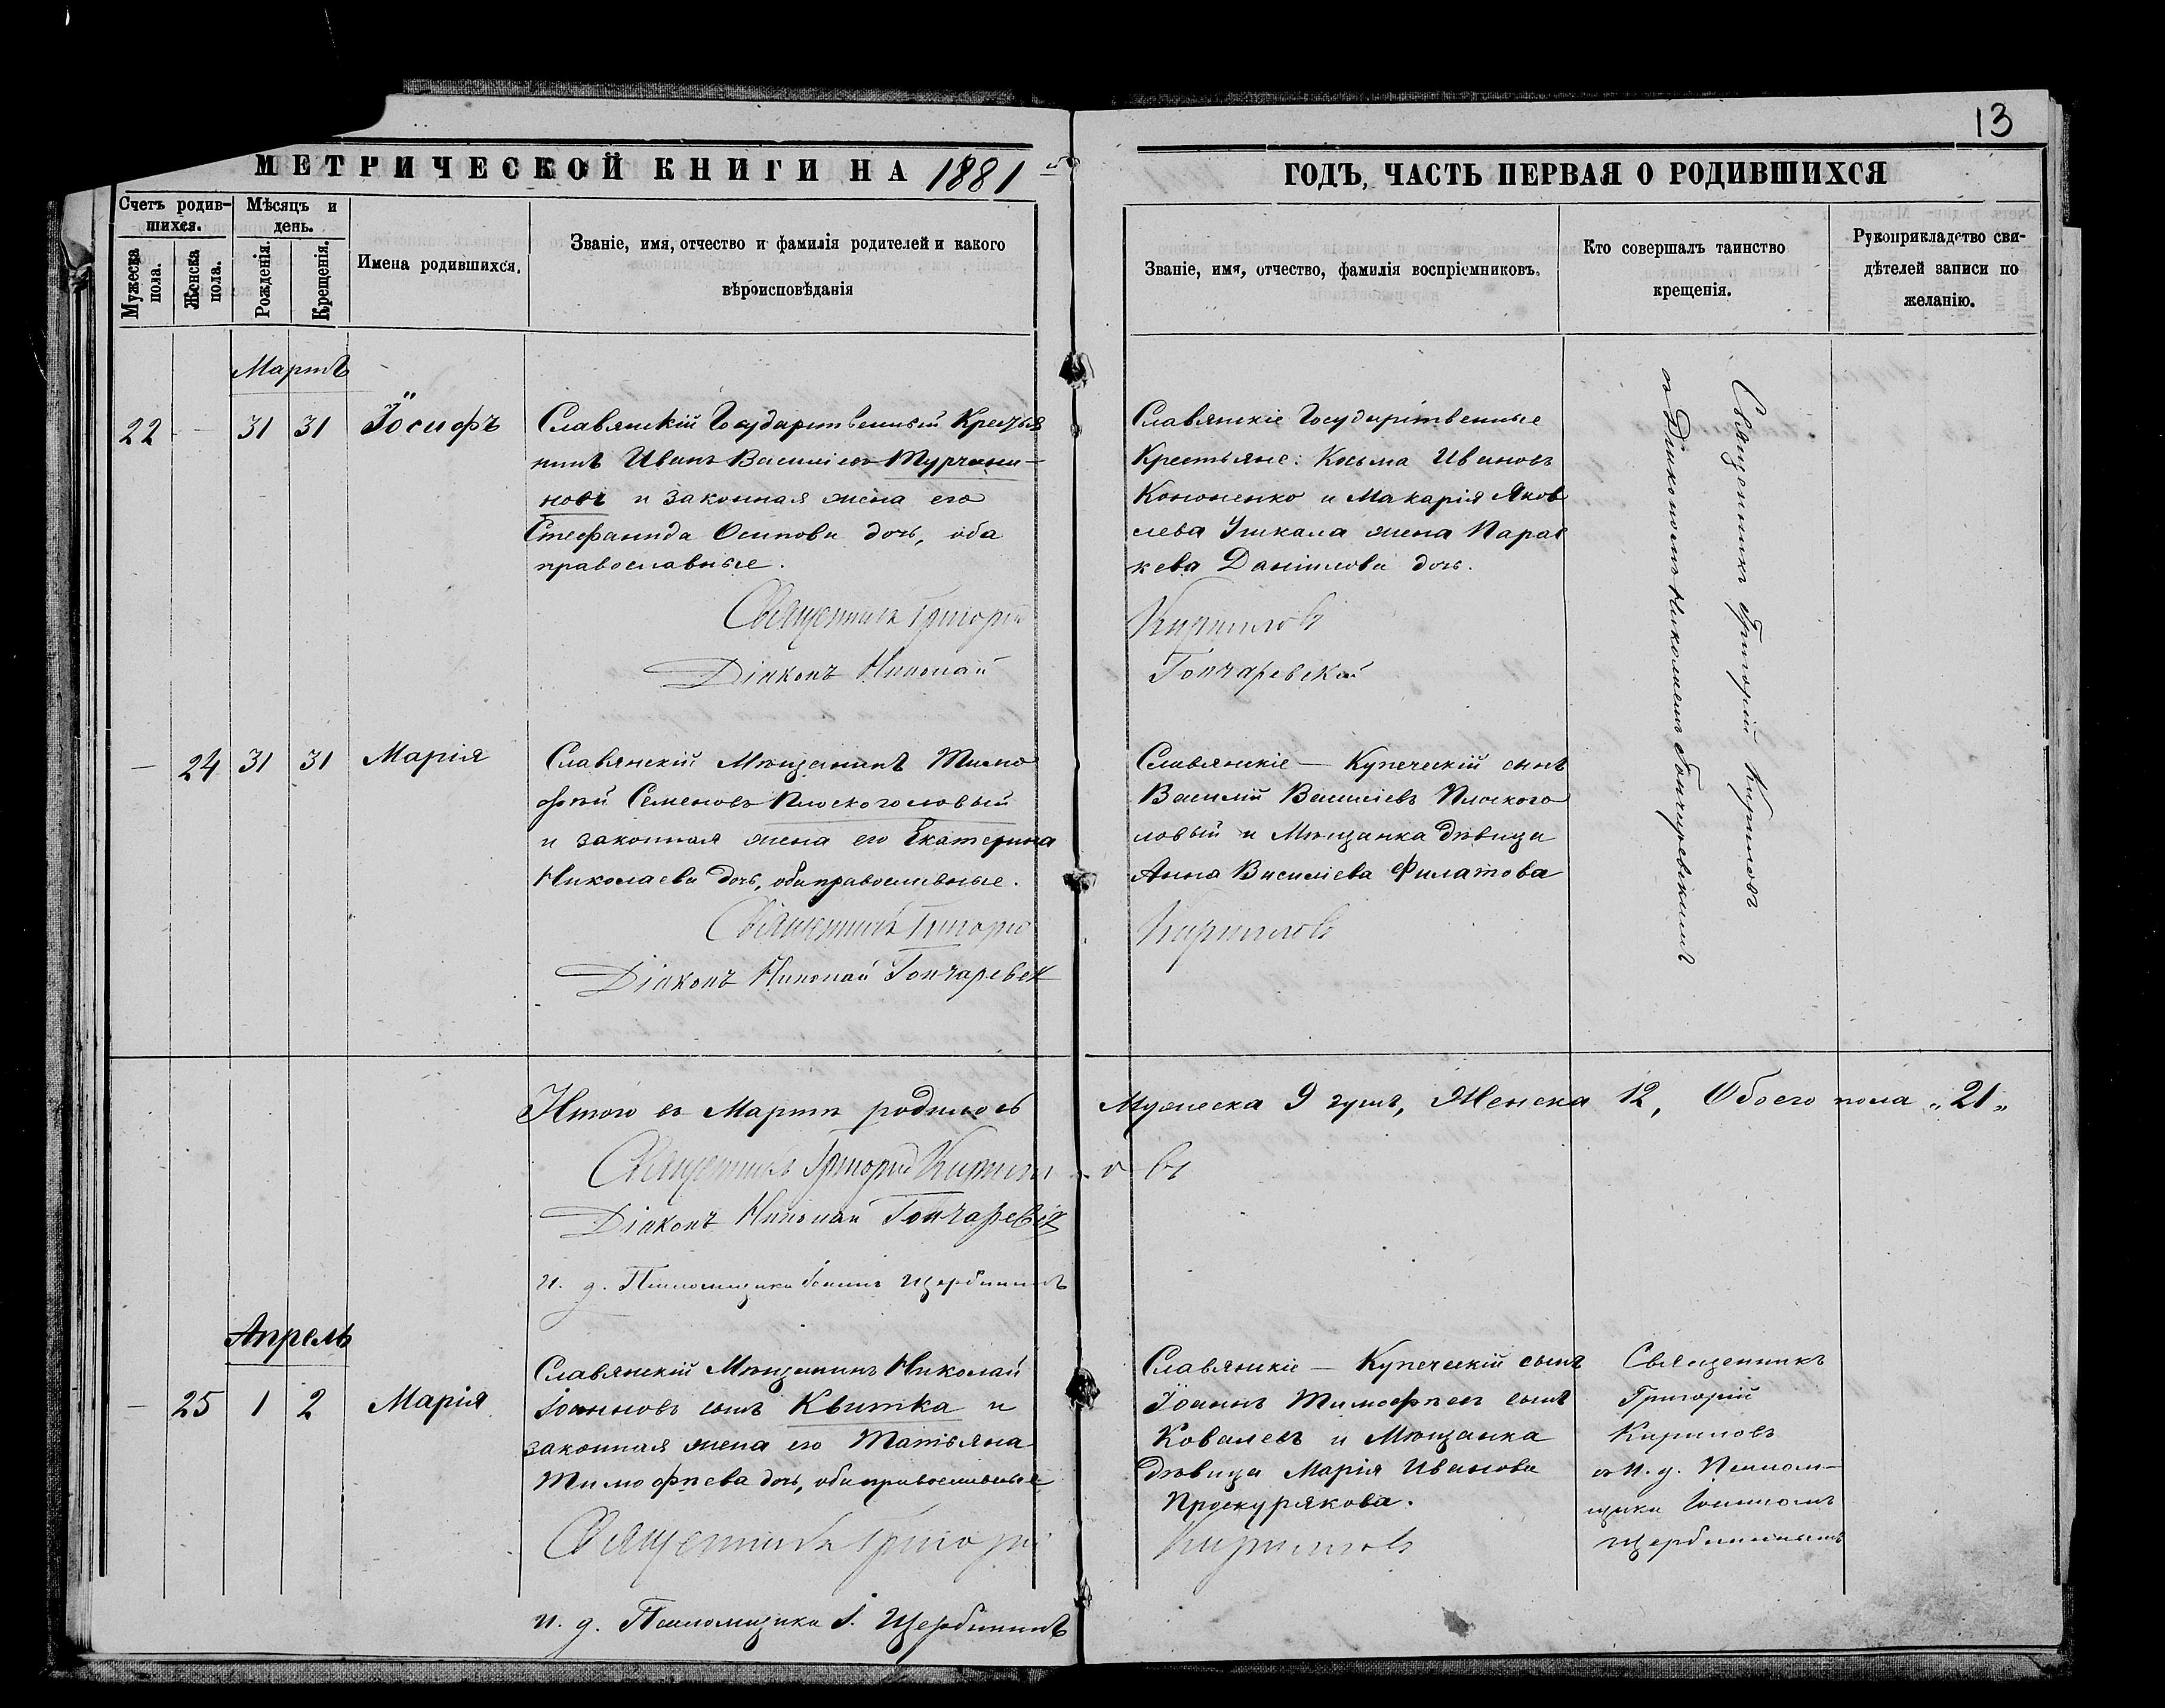 13
МЕТРИЧЕСКОЙ КНИГИ НА 1881 й
ГОДЪ, ЧАСТЬ ПЕРВАЯ О РОДИВШИХСЯ
Счетъ родив-
шихся.
Мужеска пола.
Женска пола.
Мѣсяцъ и
день.
Рожденія.
Крещенія.
Имена родившихся.
Званіе, имя, отчество и фамилія родителей и какого
вѣроисповѣданія
Званіе, имя, отчество, фамилія воспріемниковъ.
Кто совершалъ таинство
крещенія.
Рукоприкладство сви-
дѣтелей записи по
желанію.
Мартъ
22 - 31 31 Іосифъ
Славянскій Государственный Крестья
нинъ Иванъ Василіевъ Турчани-
новъ и законная жена его
Стефанида Осипова дочь, оба
православные.
Священникъ Григорій
Діаконъ Николай
Славянскіе Государственные
Крестьяне: Косьма Ивановъ
Кононенко и Макарія Яков
лева Ушкала жена Парас
кева Даніилова дочь.
Кириловъ
Гончаревскій
Священникъ Григорій Кириловъ
съ Діакономъ Николаемъ Гончаревскимъ
— 24 31 31 Марія
Славянскій Мѣщанинъ Тимо
фѣй Семеновъ Плоскоголовый
и законная жена его Екатерина
Николаева дочь, оба православные.
Священникъ Григорій
Діаконъ Николай Гончаревск
Славянскіе — Купеческій сынъ
Василій Василіевъ Плоского
ловый и Мѣщанка дѣвица
Анна Василіева Филатова
Кириловъ
Итого въ Мартѣ родилось
Мужеска 9 душъ, Женска 12, Обоего пола „21„
Священникъ Григорій Кирил
овъ
Діаконъ Николай Гончаревск
и. д. Псаломщика Іоаннъ Щербининъ
Апрель
— 25 1 2 Марія
Славянскій Мѣщанинъ Николай
Іоанновъ сынъ Квитка и
законная жена его Татіяна
Тимофѣева дочь, оба православные
Священникъ Григорій
и. д. Псаломщика І. Щербининъ
Славянскіе — Купеческій сынъ
Іоаннъ Тимофѣевъ сынъ
Ковалевъ и Мѣщанка
дѣвица Марія Иванова
Проскурякова.
Кириловъ
Священникъ
Григорій
Кириловъ
съ и. д. Псалом-
щика Іоанномъ
Щербининымъ